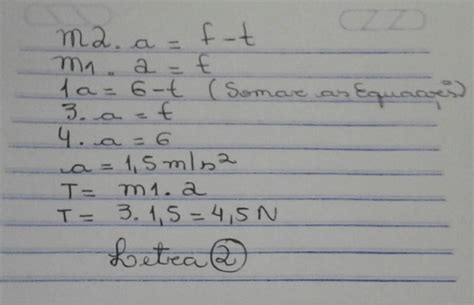 m2. a = f-t
m1. a = t
1a = 6-t (Somar as Equações)
3. a = t
4. a = 6
a = 1,5 m/s²
T = m1. a
T = 3. 1,5 = 4,5 N
Letra 2